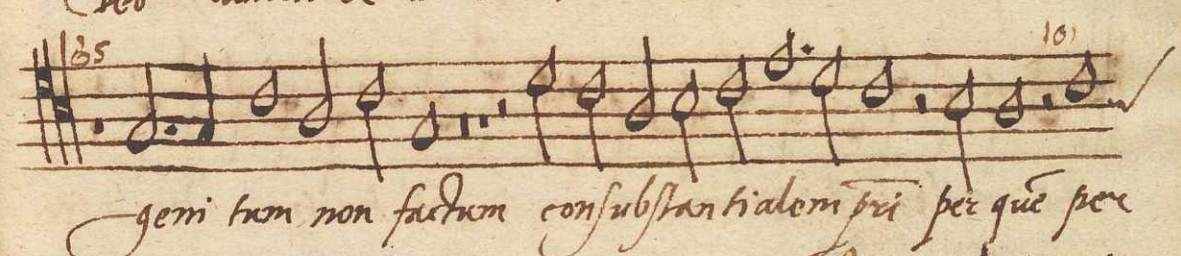 65
101
geni tum non factum consubstantialem p̄ri per quē per